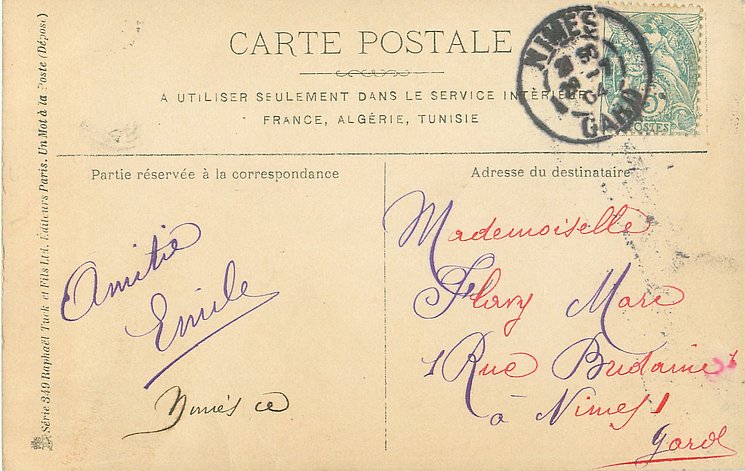 CARTE POSTALE
A UTILISER SEULEMENT DANS LE SERVICE INTÉRIEUR
FRANCE, ALGÉRIE, TUNISIE
NIMES
04
GARD
5
POSTES
Partie réservée à la correspondance
Amitié
Emile
Nimes ce
Adresse du destinataire
Mademoiselle
Flavy Marc
1 Rue Budaine 1
à Nimes 1
Gard
Série 349 Raphaël Tuck et Fils Ltd. Éditeurs Paris. Un Mot à la Poste (Déposé)